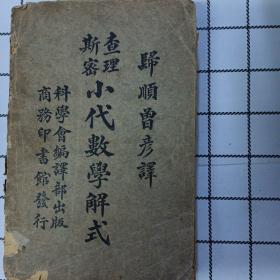 歸順曾彥譯
查理
斯密
小代數學解式
科學會編譯部出版
商務印書館發行